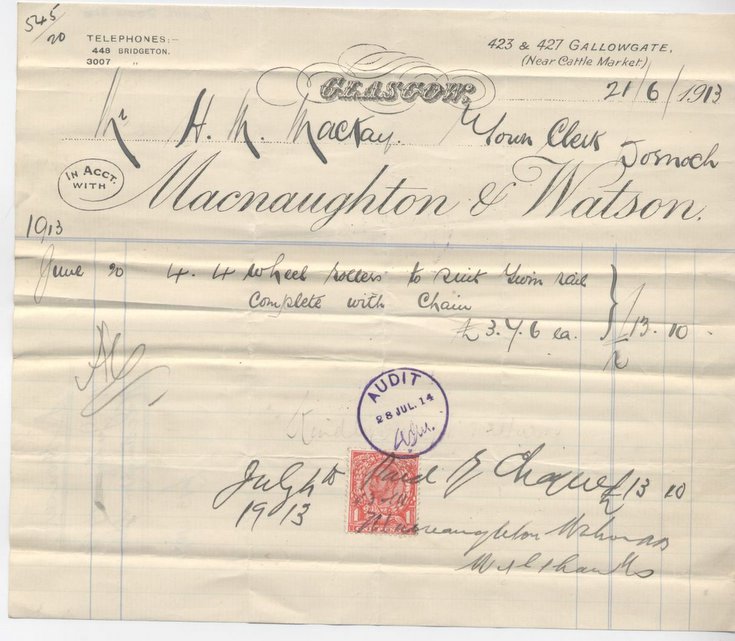 545/20
TELEPHONES:-
448 BRIDGETON.
3007 "
423 & 427 GALLOWGATE,
(Near Cattle Market)
GLASGOW,
21/6/1913
Mr H. M. Mackay. Town Clerk Dornoch
IN ACCT. WITH
Macnaughton & Watson.
1913
June 20 4. 4 wheel rollers to suit Twin rail
complete with Chain
£3.7.6 ea. £13.10
AUDIT
28 JUL. 14
July 1913 Paid By Cheque £13 10
Macnaughton & Watson
With thanks